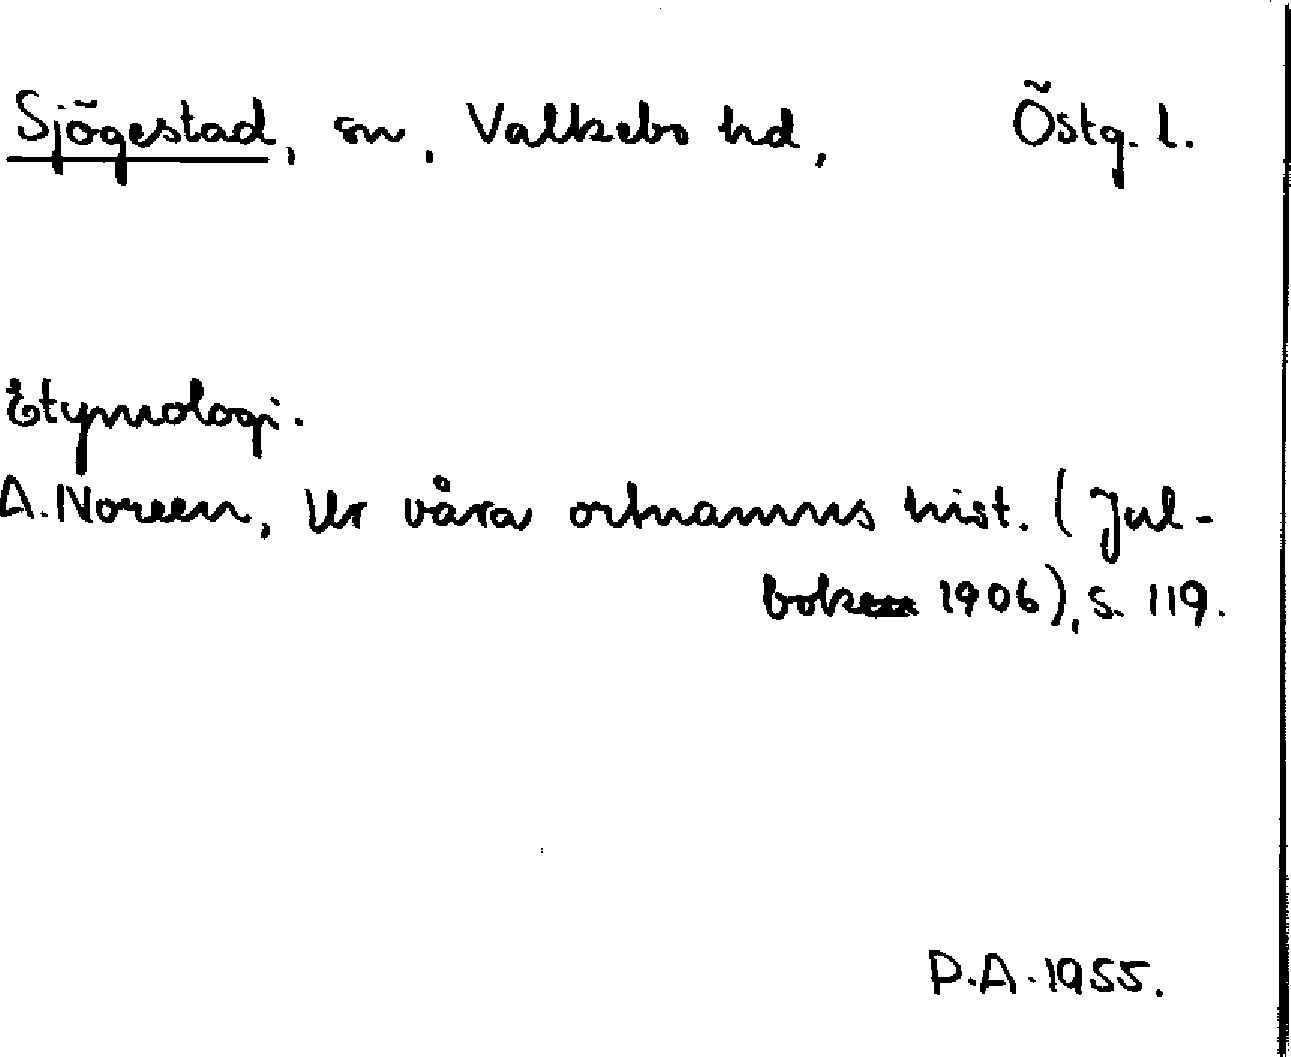 Sjögestad, sn, Valkebo hd, Östg. l.
Etymologi.
A. Noreen, Ur våra ortnamns hist. (Jul-
boken 1906), s. 119.
P.A. 1955.